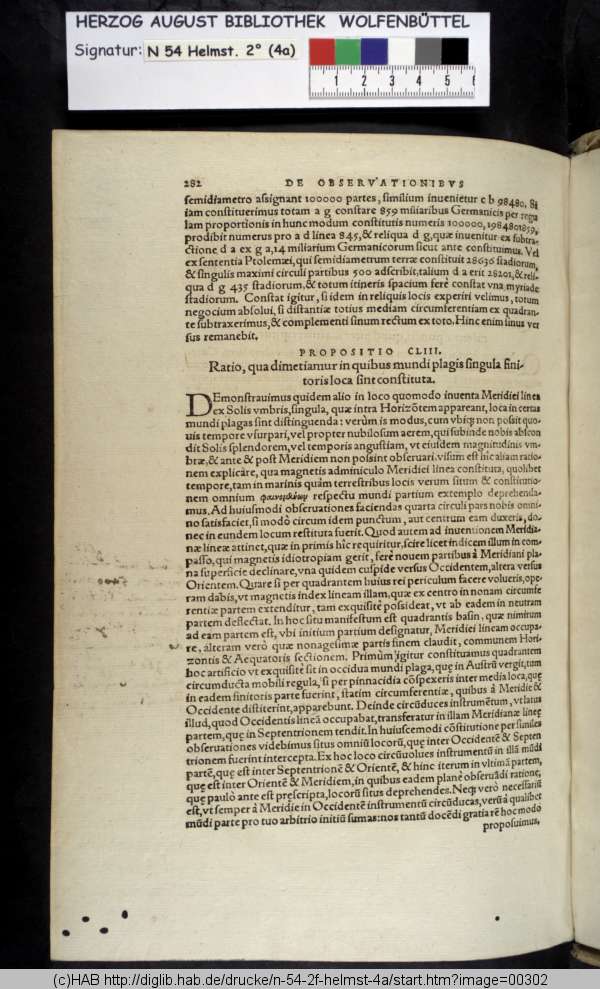 HERZOG AUGUST BIBLIOTHEK WOLFENBÜTTEL
Signatur: N 54 Helmst. 2° (4a)
1 2 3 4 5
282 DE OBSERVATIONIBVS
semidiametro assignant 100000 partes, similium inuenietur c b 98480. Si
iam constituerimus totam a g constare 859 miliaribus Germanicis per regu
lam proportionis in hunc modum constitutis numeris 100000, 98480 859,
prodibit numerus pro a d linea 845, & reliqua d g, quæ inuenitur ex subtra-
ctione d a ex g a, 14 miliarium Germanicorum sicut ante constituimus. Vel
ex sententia Ptolemæi, qui semidiametrum terræ constituit 28636 stadiorum,
& singulis maximi circuli partibus 500 adscribit, talium d a erit 28201, & reli-
qua d g 435 stadiorum, & totum itineris spacium ferè constat vna myriade
stadiorum. Constat igitur, si idem in reliquis locis experiri velimus, totum
negocium absolui, si distantiæ totius mediam circumferentiam ex quadran-
te subtraxerimus, & complementi sinum rectum ex toto. Hinc enim sinus ver
sus remanebit.
PROPOSITIO CLIII.
Ratio, qua dimetiamur in quibus mundi plagis singula fini-
toris loca sint constituta.
DEmonstrauimus quidem alio in loco quomodo inuenta Meridiei linea
ex Solis vmbris, singula, quæ intra Horizōtem appareant, loca in certas
mundi plagas sint distinguenda: verùm is modus, cum vbiq; non possit quo-
uis tempore vsurpari, vel propter nubilosum aerem, qui subinde nobis abscon
dit Solis splendorem, vel temporis angustiam, vt eiusdem magnitudinis vm-
bræ, & ante & post Meridiem non possint obseruari. visum est hîc aliam ratio-
nem explicâre, qua magnetis adminiculo Meridiei linea constituta, quolibet
tempore, tam in marinis quàm terrestribus locis verum situm & constitutio-
nem omnium φαινομένων respectu mundi partium extemplo deprehenda-
mus. Ad huiusmodi obseruationes faciendas quarta circuli pars nobis omni-
no satisfaciet, si modò circum idem punctum, aut centrum eam duxeris, do-
nec in eundem locum restituta fuerit. Quod autem ad inuentionem Meridia-
næ lineæ attinet, quæ in primis hîc requiritur, scire licet indicem illum in com-
passo, qui magnetis idiotropiam gerit, ferè nouem partibus à Meridiani pla-
na superficie declinare, vna quidem cuspide versus Occidentem, altera versus
Orientem. Quare si per quadrantem huius rei periculum facere volueris, ope-
ram dabis, vt magnetis index lineam illam, quæ ex centro in nonam circumfe
rentiæ partem extenditur, tam exquisitè possideat, vt ab eadem in neutram
partem deflectat. In hoc situ manifestum est quadrantis basin, quæ nimirum
ad eam partem est, vbi initium partium designatur, Meridiei lineam occupa-
re, alteram verò quæ nonagesimæ partis finem claudit, communem Hori-
zontis & Aequatoris sectionem. Primùm igitur constituamus quadrantem
hoc artificio vt exquisitè sit in occidua mundi plaga, quę in Austrū vergit, tum
circumducta mobili regula, si per pinnacidia cōspexeris inter media loca, quę
in eadem finitoris parte fuerint, statim circumferentiæ, quibus à Meridie &
Occidente distiterint, apparebunt. Deinde circūduces instrumētum, vt latus
illud, quod Occidentis lineā occupabat, transferatur in illam Meridianæ lineę
partem, quę in Septentrionem tendit. In huiuscemodi cōstitutione per similes
obseruationes videbimus situs omniū locorū, quę inter Occidentē & Septen
trionem fuerint intercepta. Ex hoc loco circūuolues instrumentū in illā mūdi
partē, quę est inter Septentrionē & Orientē, & hinc iterum in vltimā partem,
quę est inter Orientē & Meridiem, in quibus eadem planè obseruādi ratione,
quę paulò ante est prescripta, locorū situs deprehendes. Neq; verò necessariū
est, vt semper à Meridie in Occidentē instrumentū circūducas, verū à qualibet
mūdi parte pro tuo arbitrio initiū sumas: nos tantū docēdi gratia rē hoc modo
proposuimus.
(c)HAB http://diglib.hab.de/drucke/n-54-2f-helmst-4a/start.htm?image=00302